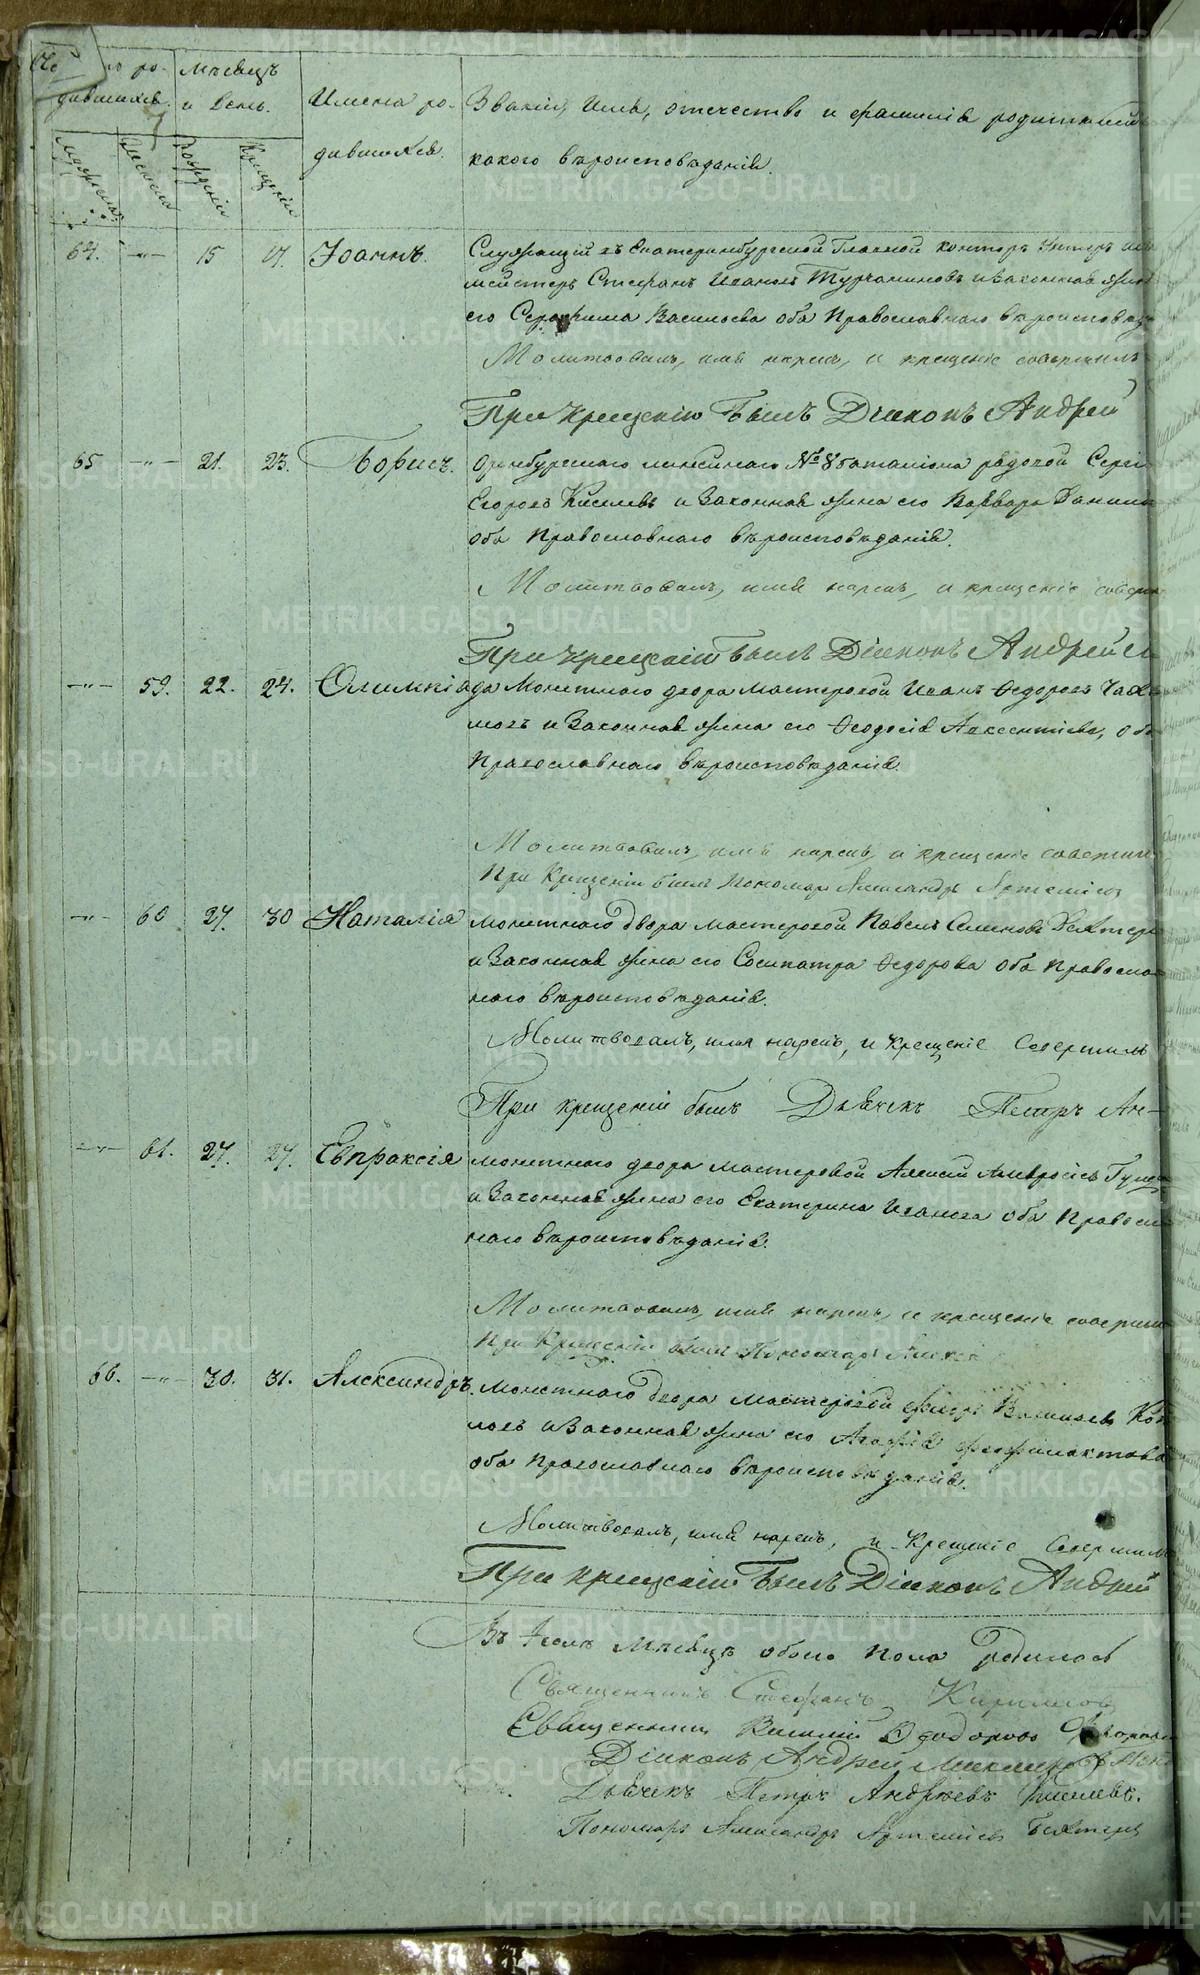 METRIKI.GASO-URAL.RU
ло ро-
дившихся.
Мѣсяцъ
и День.
Имена ро-
дившихся.
Званіе, Имя, отечество и фамилія родителей
какого вѣроисповѣданія.
Мужеска
Женска
Рожденія
Крещенія
64. —"— 15 17. Іоаннъ.
Служащій въ Екатеринбургской Главной конторѣ Унтеръ
мейстеръ Стефанъ Ивановъ Турчаниновъ и Законная жена
его Серафима Васильева оба Православнаго вѣроисповѣд
Молитвовалъ, имя нарекъ, и крещеніе совершилъ
При крещеніи былъ Діаконъ Андрей
65 —"— 21. 23. Борисъ.
Оренбургскаго линейнаго № 8 баталіона рядовой Сергѣ
Егоровъ Киселевъ и Законная жена его Варвара Данил
оба Православнаго вѣроисповѣданія.
Молитвовалъ, имя нарекъ, и крещеніе соверш
При крещеніи былъ Діаконъ Андрей
—"— 59. 22. 24. Олимпіада
Монетнаго двора мастеровой Иванъ Федоровъ
мовъ и Законная жена его Феодосія Авксентіева, оба
Православнаго вѣроисповѣданія.
Молитвовалъ, имя нарекъ, и крещеніе совершил
При Крещеніи былъ Пономарь Александръ Артеміев
—"— 60 27. 30 Наталія
монетнаго двора мастеровой Павелъ Семеновъ Бехтере
и Законная жена его Сосипатра Федорова оба Правосла
наго вѣроисповѣданія.
Молитвовалъ, имя нарекъ, и Крещеніе Совершилъ
При крещеніи былъ Дьячекъ Петръ Ан-
—"— 61. 27. 27. Евпраксія
монетнаго двора мастеровой Алексѣй Амвросіевъ
и Законная жена его Екатерина Иванова оба Правосла
наго вѣроисповѣданія.
Молитвовалъ, имя нарекъ, и крещеніе соверши
При Крещеніи былъ Пономарь Алекс
66. —"— 30. 31. Александръ.
Монетнаго двора мастеровой Васильевъ
ловъ и Законная жена его Агафія Феофилактова
оба Православнаго вѣроисповѣданія.
Молитвовалъ, имя нарекъ, и Крещеніе Совершил
При крещеніи былъ Діаконъ Андрей
Въ Іюлѣ Мѣсяцѣ обоего пола родилось
Священникъ Стефанъ Кирилловъ
Священникъ Василій
Діаконъ Андрей
Дьячекъ Петръ Андреевъ Киселевъ.
Пономарь Александръ Артеміевъ Бехтере